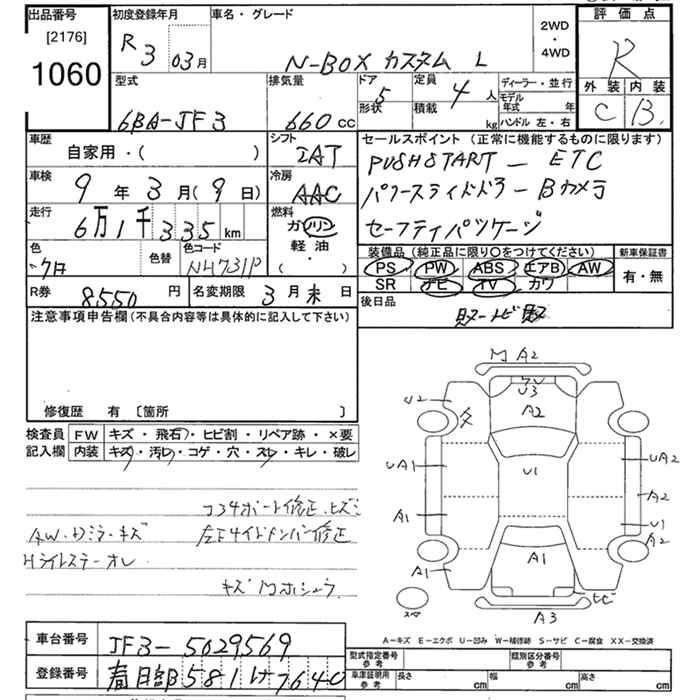 出品番号 初度登録年月 車名・グレード 2WD ・ 4WD 評価点
[2176]
1060
R 3 03月 N-BOX カスタム L R
外装 内装
C B
型式 排気量 ドア 定員 ディーラー・並行
6BA-JF3 660 cc 5 4人 モデル年式 年
形状 積載 kg ハンドル 左・右
車歴 シフト セールスポイント (正常に機能するものに限ります)
自家用・( ) IAT PUSHSTART - ETC
車検 冷房 パワースライドドアー Bカメラ
9年3月(9日) AAC
走行 燃料 セーフティパッケージ
6万1千335km ガソリン
軽油
・
( )
色 色替 色コード 装備品 (純正品に限り〇をつけてください) 新車保証書
クロ NH731P PS PW ABS エアB AW 有・無
SR ナビ TV カワ
R券 8,550円 名変期限 3月末日 後日品
注意事項申告欄(不具合内容等は具体的に記入して下さい)
修復歴 有 〔箇所 〕
検査員 FW キズ・飛石・ヒビ割・リペア跡・×要
記入欄 内装 キズ・汚レ・コゲ・穴・スレ・キレ・破レ
AW・Dミラ・キズ
Hライトステーオレ
M A2
U3
A2
U2
UA1
U1
UA2
A1
A2
U1
A2
A1
A1
ヒビ
A3
スペア
A-キズ E-エクボ U-凹み W-補修跡 S-サビ C-腐食 XX-交換済
車台番号 JF3-5029569 型式指定番号 参考 類別区分番号 参考
登録番号 春日部 581 け 7640 車庫証明用 参考 長さ cm 幅 cm 高さ cm